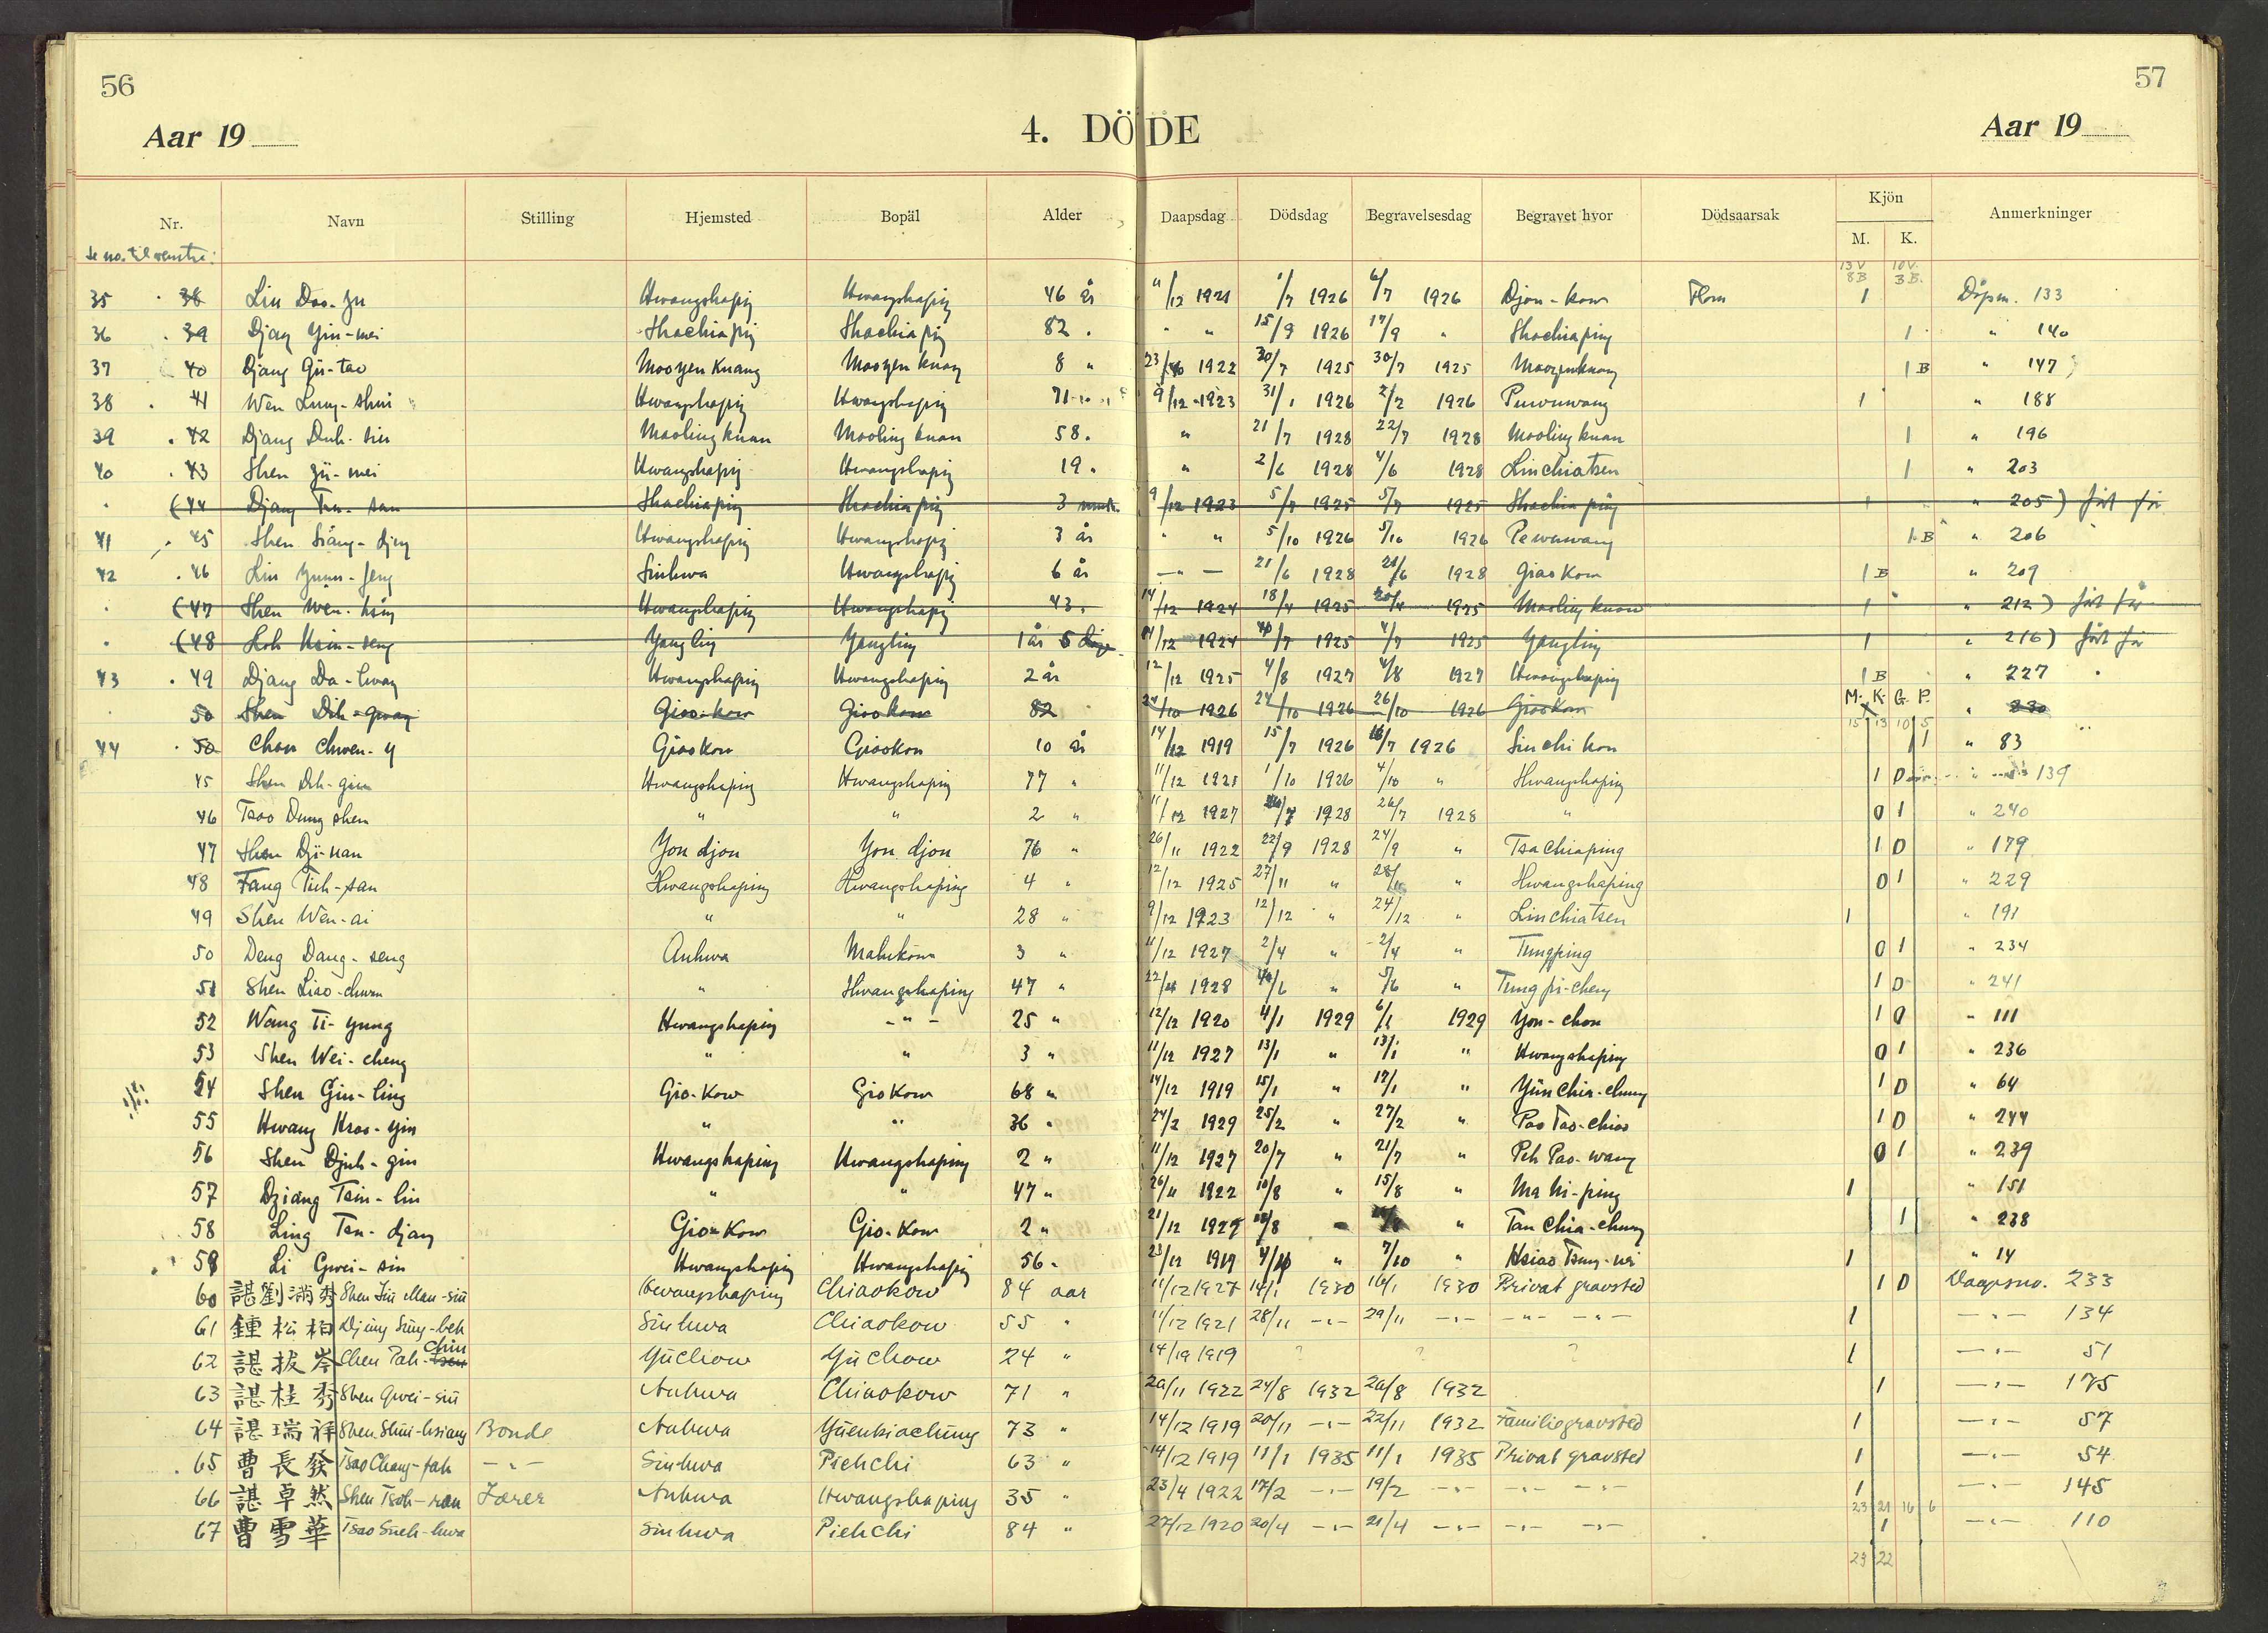 56
57
Aar 19
4. DÖDE
Aar 19
Nr. Navn Stilling Hjemsted Bopäl Alder Daapsdag Dödsdag Begravelsesdag Begravet hvor Dödsaarsak Kjön M. K. Anmerkninger
Se no. til venstre:
13 V 10 V.
8 B 3 B.
35 38 Liu Dao-zu Hwangshaping Hwangshaping 46 år 11/12 1921 1/7 1926 6/7 1926 Djou-kow 1 Dåpsn. 133
36 39 Djang Yin-mei Shachiaping Shachiaping 82 " " " 15/9 1926 17/9 " Shachiaping 1 " 140
37 40 Djang Gü-tao Mooyenkuang Mooyenkuang 8 " 23/10 1922 30/7 1925 30/7 1925 Mooyenkuang 1 B " 147
38 41 Wen Lung-shui Hwangshaping Hwangshaping 71 9/12 1923 31/1 1926 2/2 1926 Puwuwang 1 " 188
39 42 Djang Duh-sin Maolingkuan Maolingkuan 58 " " 21/7 1928 22/7 1928 Maolingkuan 1 " 196
40 43 Shen Yü-mei Hwangshaping Hwangshaping 19 " " 2/6 1928 4/6 1928 Linchiatsen 1 " 203
(44 Djang Tsu-san Shachiaping Shachiaping 3 9/12 1923 5/7 1925 5/7 1925 Shachiaping 1 " 205) ført før
41 45 Shen Siang-djeng Hwangshaping Hwangshaping 3 år " " 5/10 1926 5/10 1926 Pewuwang 1 B " 206
42 46 Liu Yuun-feng Sinhwa Hwangshaping 6 år — " — 21/6 1928 21/6 1928 Giaokow 1 B " 209
(47 Shen Wen-hsing Hwangshaping Hwangshaping 43 " 14/12 1924 18/4 1925 20/4 1925 Maolingkuan 1 " 212) ført før
(48 Hoh Hsin-seng Yangling Yangling 1 år 5 dage 14/12 1924 4/7 1925 4/7 1925 Yangling 1 " 216) ført før
43 49 Djang Da-hwang Hwangshaping Hwangshaping 2 år 12/12 1925 4/8 1927 4/8 1927 Hwangshaping 1 B " 227
M. K. G. P.
50 Shen Dih-gwang Giaokow Giaokow 82 24/10 1926 24/10 1926 26/10 1926 Giaokow " 230
15 13 10 5
44 50 Chou Chwen-y Giaokow Giaokow 10 år 14/12 1919 15/7 1926 16/7 1926 Sinchikou 1 " 83
45 Shen Dih-gin Hwangshaping Hwangshaping 77 " 11/12 1921 1/10 1926 4/10 " Hwangshaping 1 0 " 139
46 Tsao Dung shen " " 2 " 11/12 1927 26/7 1928 26/7 1928 " 0 1 " 240
47 Shen Dji-nan Yon djou Yon djou 76 " 26/11 1922 22/9 1928 24/9 " Tsachiaping 1 0 " 179
48 Fang Tuh-san Hwangshaping Hwangshaping 4 " 12/12 1925 27/11 " 28/11 " Hwangshaping 0 1 " 229
49 Shen Wen-ai " " 28 " 9/12 1923 12/12 " 24/12 " Linchiatsen 1 " 191
50 Deng Dang-seng Anhwa Mahikow 3 " 11/12 1927 2/4 " 2/4 " Tungping 0 1 " 234
51 Shen Liao-chwen " Hwangshaping 47 " 22/4 1928 4/6 " 5/6 " Tungpi-cheng 1 0 " 241
52 Wang Ti-yung Hwangshaping - " - 25 " 12/12 1920 4/1 1929 6/1 1929 Yon-chou 1 0 " 111
53 Shen Wei-cheng " " 3 " 11/12 1927 13/1 " 13/1 " Hwangshaping 0 1 " 236
54 Shen Gin-ling Gio-Kow Giokow 68 " 14/12 1919 15/1 " 17/1 " Yünchia-chung 1 0 " 64
55 Hwang Hsao-yin " " 36 " 24/2 1929 25/2 " 27/2 " Pao Tao-chiao 1 0 " 244
56 Shen Djuh-gin Hwangshaping Hwangshaping 2 " 11/12 1927 20/7 " 21/7 " Peh Pao-wang 0 1 " 239
57 Dziang Tsin-lin " " 47 " 26/11 1922 10/8 " 15/8 " Ma hi-ping 1 " 151
58 Ling Tan-djang Gio-Kow Gio-Kow 2 " 21/12 1927 /8 " " Tan Chia-chung 1 " 238
59 Li Gwei-sin Hwangshaping Hwangshaping 56 " 23/12 1919 4/10 " 7/10 " Hsiao Tsung-wi 1 " 14
60 諶劉滿秀 Shen Liu Man-siu Hwangshaping Chiaokow 84 aar 11/12 1927 14/1 1930 16/1 1930 Privat gravsted 1 0 Daapsno. 233
61 鍾松柏 Djung Sung-beh Sinhwa Chiaokow 55 " 11/12 1921 28/11 -"- 29/11 -"- -"- -"- 1 -"- 134
62 諶拔岑 Chen Pah-Tsen Chin Yüchow Yüchow 24 " 14/12 1919 ? ? ? 1 -"- 51
63 諶桂秀 Shen Gwei-siu Anhwa Chiaokow 71 " 29/11 1922 24/8 1932 26/8 1932 1 -"- 175
64 諶瑞祥 Shen Shui-hsiang Bonde Anhwa Yüenkiachung 73 " 14/12 1919 20/11 -"- 22/11 1932 Familiegravsted 1 -"- 57
65 曹長發 Tsao Chang-fah -"- Sinhwa Piehchi 63 " 14/12 1919 11/1 1935 11/1 1935 Privat gravsted 1 -"- 54
66 諶卓然 Shen Tsoh-ran Lærer Anhwa Hwangshaping 35 " 23/4 1922 17/2 -"- 19/2 -"- -"- -"- 1 -"- 145
23 21 16 6
67 曹雪華 Tsao Sueh-hwa Sinhwa Piehchi 84 " 27/12 1920 20/4 -"- 21/4 -"- -"- -"- 1 -"- 110
23 22